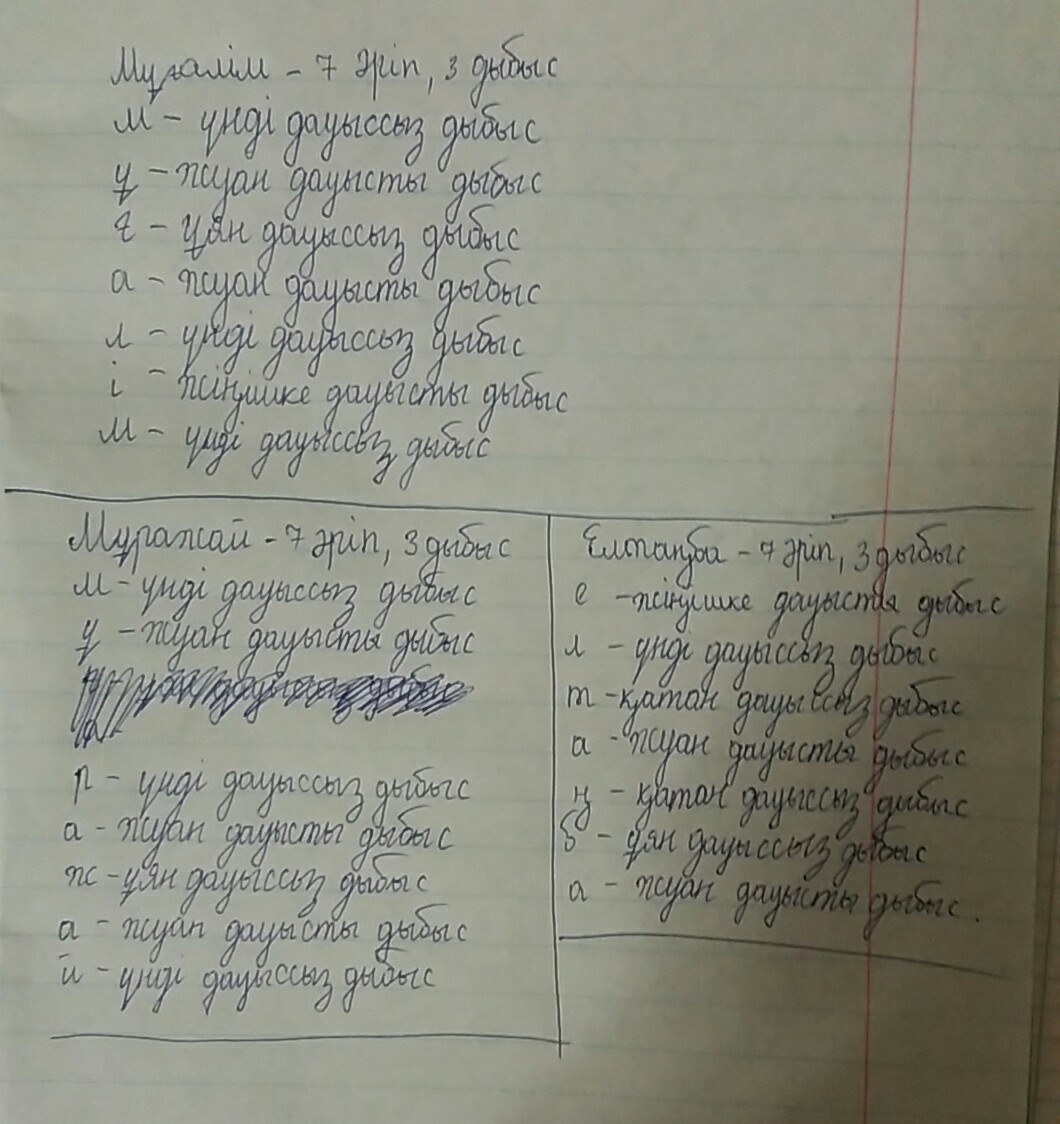 Мұғалім – 7 әріп, 3 дыбыс
м – үнді дауыссыз дыбыс
ұ – жуан дауысты дыбыс
ғ – ұян дауыссыз дыбыс
а – жуан дауысты дыбыс
л – үнді дауыссыз дыбыс
і – жіңішке дауысты дыбыс
м – үнді дауыссыз дыбыс
Мұражай – 7 әріп, 3 дыбыс
м – үнді дауыссыз дыбыс
ұ – жуан дауысты дыбыс
р – үнді дауыссыз дыбыс
а – жуан дауысты дыбыс
ж – ұян дауыссыз дыбыс
а – жуан дауысты дыбыс
й – үнді дауыссыз дыбыс
Елтаңба – 7 әріп, 3 дыбыс
е – жіңішке дауысты дыбыс
л – үнді дауыссыз дыбыс
т – қатан дауыссыз дыбыс
а – жуан дауысты дыбыс
ң – қатан дауыссыз дыбыс
б – ұян дауыссыз дыбыс
а – жуан дауысты дыбыс.